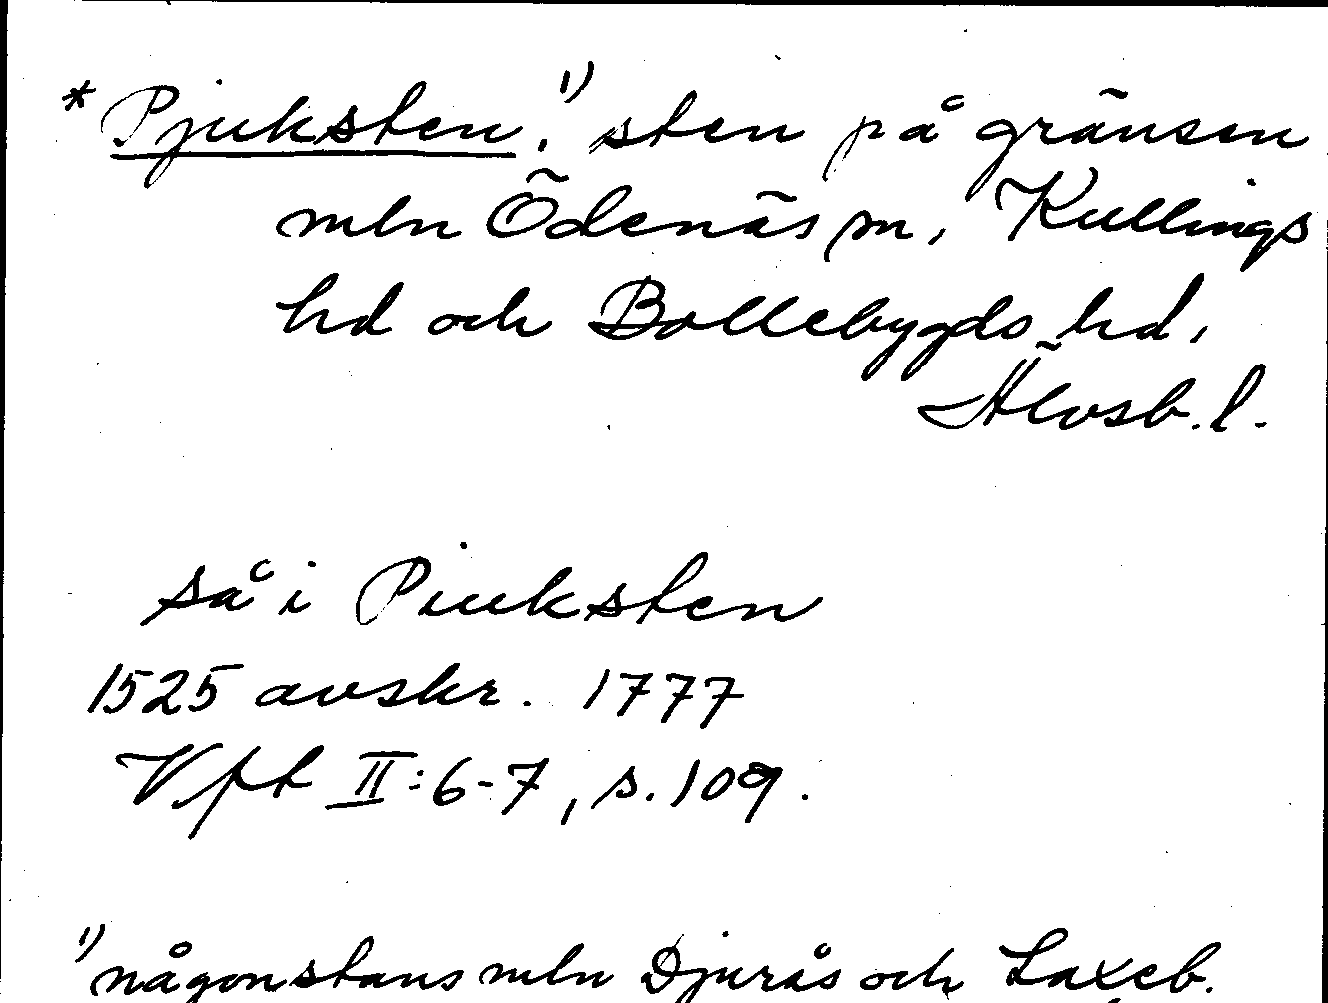 * Pjuksten,¹⁾ sten på gränsen
mln Ödenäs sn, Kullings
hd och Bollebygds hd,
Älvsb. l.
så i Piuksten
1525 avskr. 1777
Vfft II:6-7, s. 109.
¹⁾ någonstans mln Djurås och Laxeb.